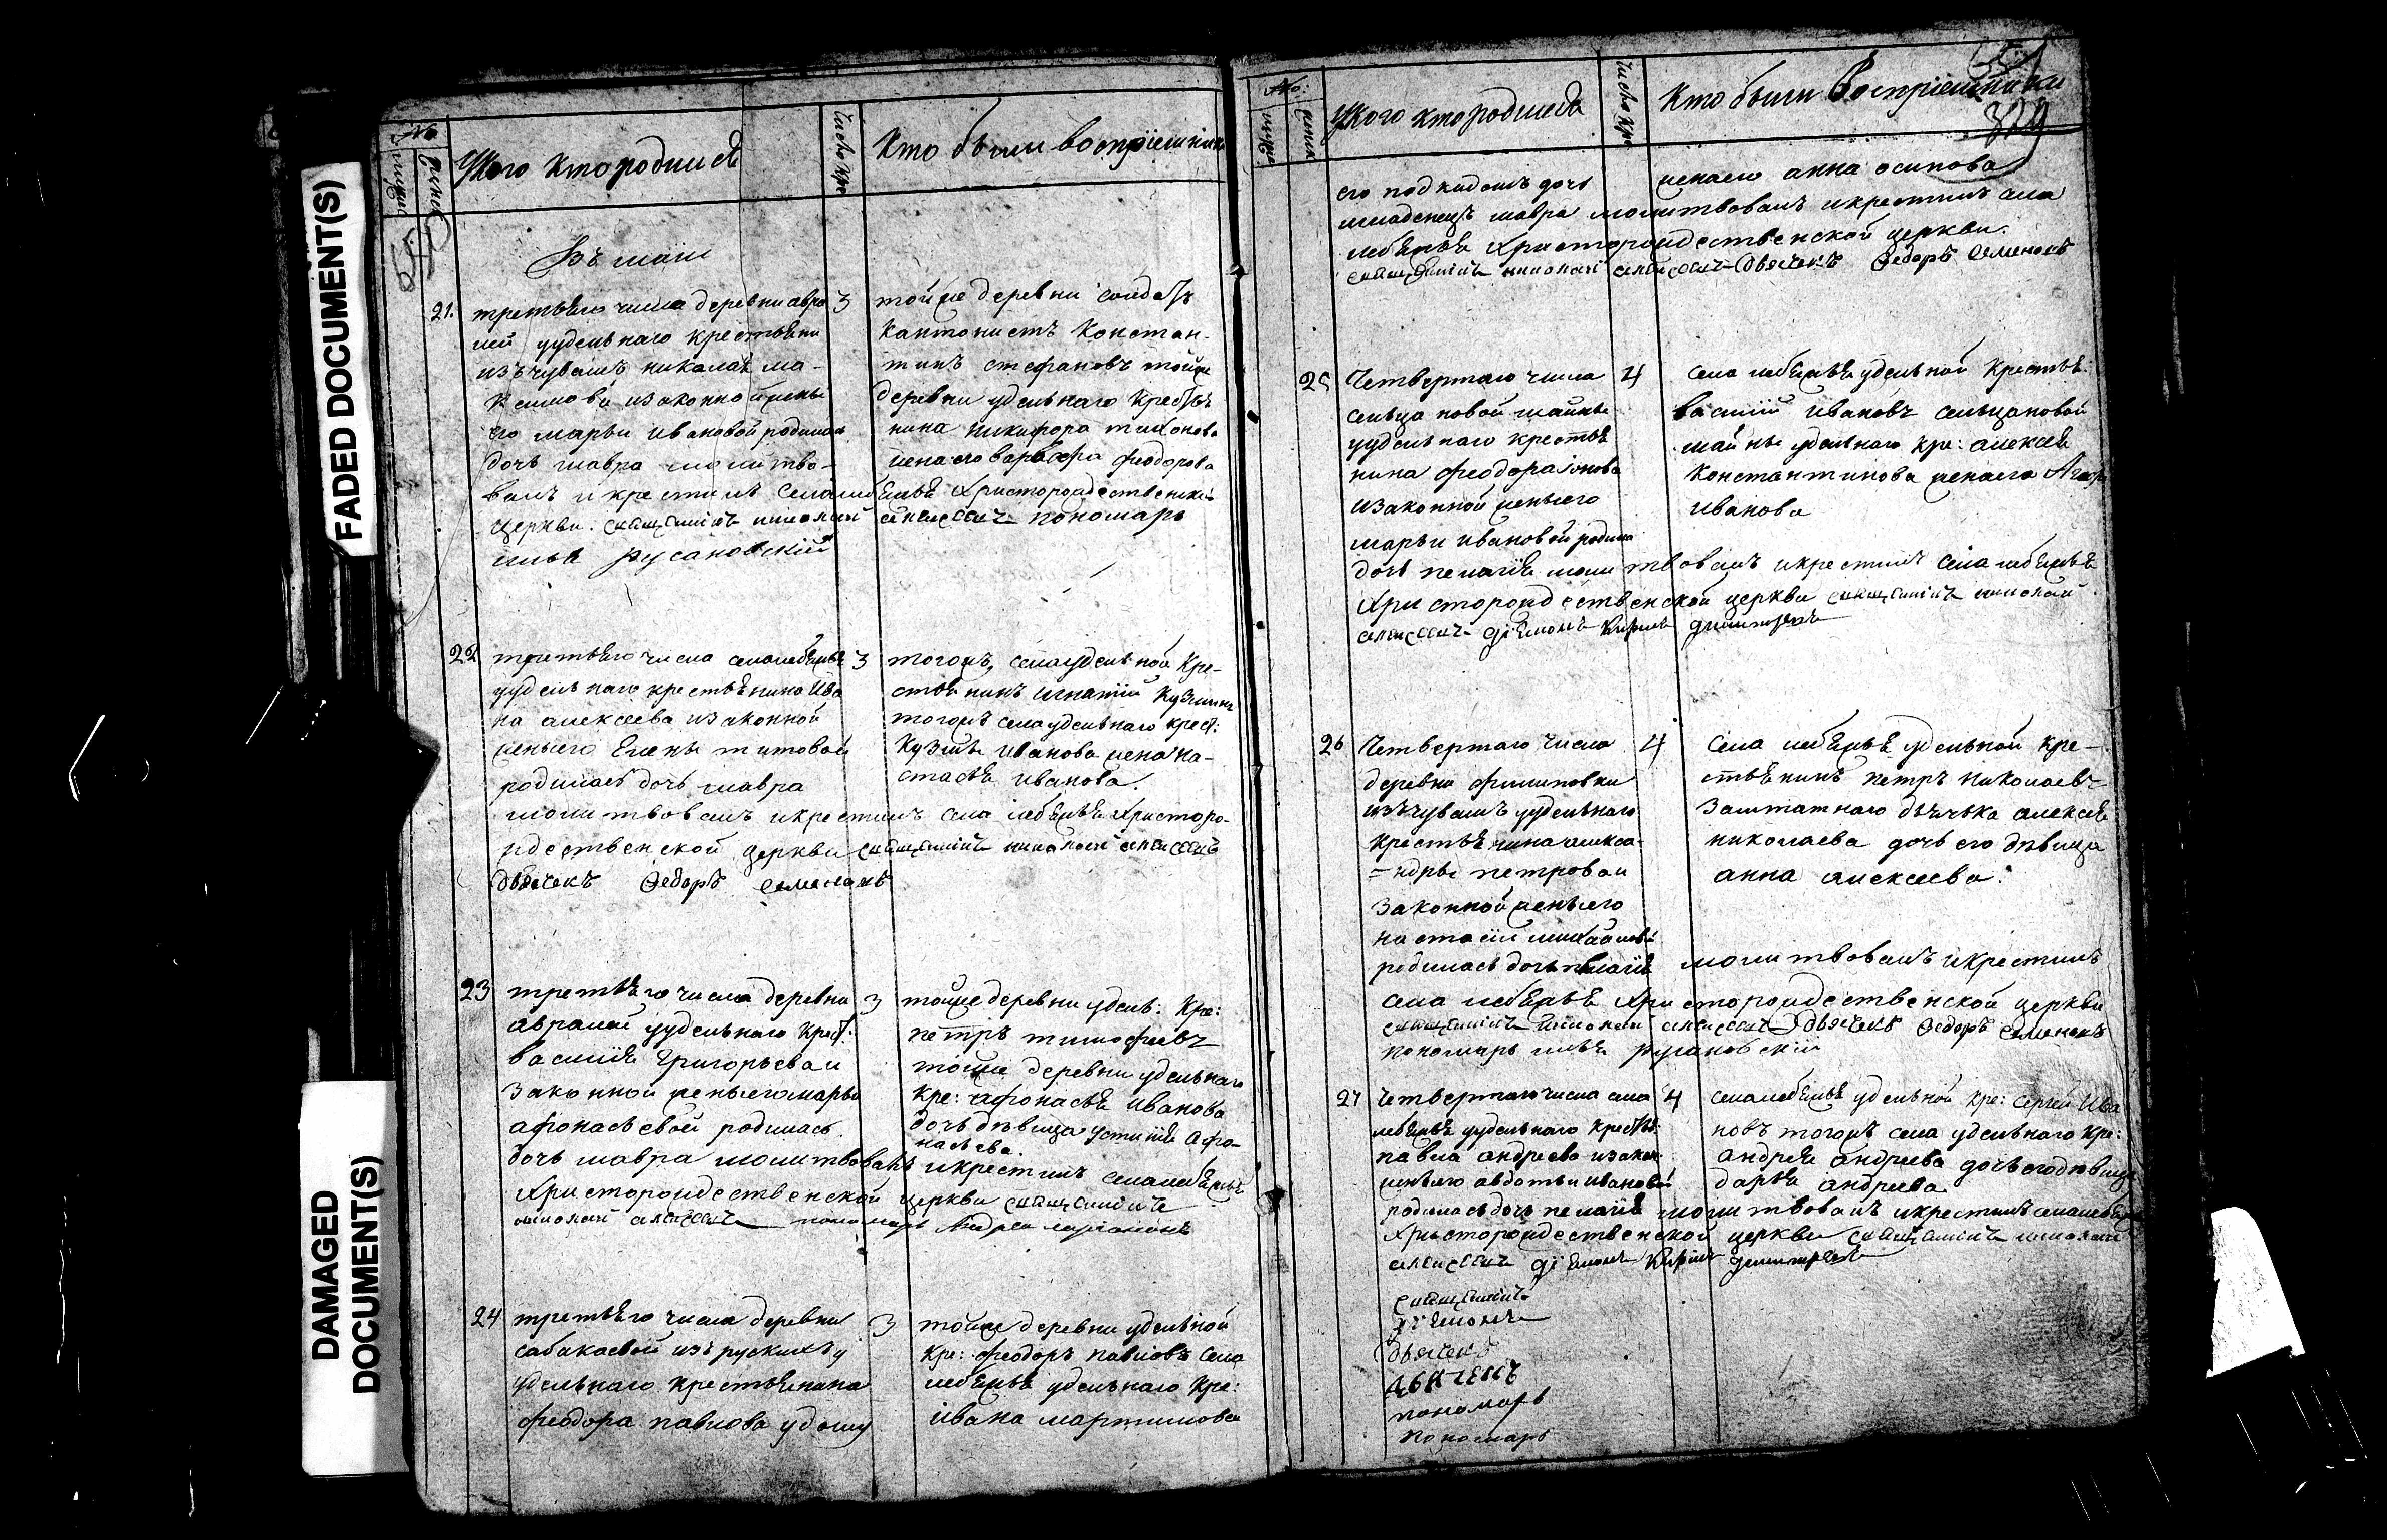 FADED DOCUMENT(S)
DAMAGED
DOCUMENT(S)
№
У кого кто родился
Число кре
Кто были восприемники
Въ маіи
21.
третьяго числа деревни авра
лей у удельнаго крестьяни
изъ чувашъ николая ма-
ксимова изаконной жены
его марьи ивановой родилась
дочь мавра молитво-
валъ и крестилъ села лебяжья христорождественской
церкви. священникъ николай алексеевъ пономарь
илья русановскій
3
той же деревни солдатъ
кантонистъ констан-
тинъ стефановъ той же
деревни удельнаго крестья
нина никифора тихонова
жена его варвара феодорова
22
третьяго числа села лебяжья
у удельнаго крестьянина ива
на алексеева изаконной
жены его елены титовой
родилась дочь мавра
молитвовалъ и крестилъ села лебяжья христоро-
ждественской церкви священникъ николай алексеевъ
дьячекъ Федоръ семеновъ
3
тогожъ села удельной кре-
стьянинъ игнатій кузминъ
тогожъ села удельнаго крест:
кузмы иванова жена на-
стасья иванова.
23
третьяго числа деревни
авралей у удельнаго крест:
василія григорьева и
законной жены его марьи
афонасьевой родилась
дочь мавра молитвовалъ и крестилъ села лебяжья
христорождественской церкви священникъ
николай алексеевъ пономарь Андрей
3
той же деревни удель: кре:
петръ тимофеевъ
той же деревни удельнаго
кре: афонасья иванова
дочь девица устинія афо-
насьева.
24
третьяго числа деревни
сабакаевой изъ рускихъ у
удельнаго крестьянина
феодора павлова у дому
3
той же деревни удельной
кре: феодоръ павловъ села
лебяжья удельнаго кре:
ивана мартинова
№:
У кого кто родился
Число кре
Кто были Восприемники
329
его подкидомъ дочь
жена его анна осипова
младенецъ мавра молитвовалъ и крестилъ села
лебяжья христорождественской церкви.
священникъ николай алексеевъ дьячекъ Федоръ Семеновъ
25
Четвертаго числа
сельца новой майны
у удельнаго крестья
нина феодора іонова
изаконной жены его
марьи ивановой родила
дочь пелагія молитвовалъ и крестилъ села лебяжья
христорождественской церкви священникъ николай
алексеевъ діяконъ Кирилъ димитріевъ
4
села лебяжья удельной крестья:
василій ивановъ сельца новой
майны удельнаго кре: алексея
константинова жена его
иванова
26
Четвертаго числа
деревни филиповки
изъ чувашъ у удельнаго
крестьянина алекса-
ндры петрова и
законной жены его
настасіи михайловой
родилась дочь пелагія молитвовалъ и крестилъ
села лебяжья христорождественской церкви
священникъ николай алексеевъ дьячекъ Федоръ Семеновъ
пономарь илья русановскій
4
села лебяжья удельной кре-
стьянинъ петръ николаевъ
заштатнаго дьячька алексея
николаева дочь его девица
анна алексеева.
27
Четвертаго числа села
лебяжья у удельнаго крестья:
павла андреева изакон
жены его авдотьи ивановой
родилась дочь пелагія молитвовалъ и крестилъ села лебяжья
христорождественской церкви священникъ николай
алексеевъ діяконъ Кирилъ димитріевъ
4
села лебяжья удельной кре: сергей ива
новъ тогожъ села удельнаго кре:
андрея андреева дочь его девица
дарья андреева
священникъ
діяконъ
дьячекъ
дьячекъ
пономарь
пономарь